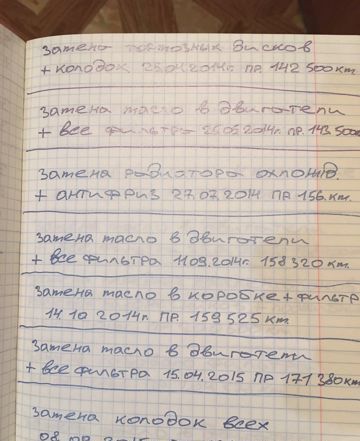 Замена тормозных дисков
+ колодок 25.04.2014г. пр. 142 500км
Замена масло в двигатели
+ все фильтра 26.05.2014г. пр. 143 500
Замена радиатора охлажд.
+ антифриз 27.07.2014 пр 156.км.
Замена масло в двигатели
+ все фильтра 11 09.2014г. 158 320 км.
Замена масло в коробке + фильтр
14.10 2014г. пр. 159 525 км.
Замена масло в двигатели
+ все фильтра 15.04.2015 пр 171 380км
Замена колодок всех